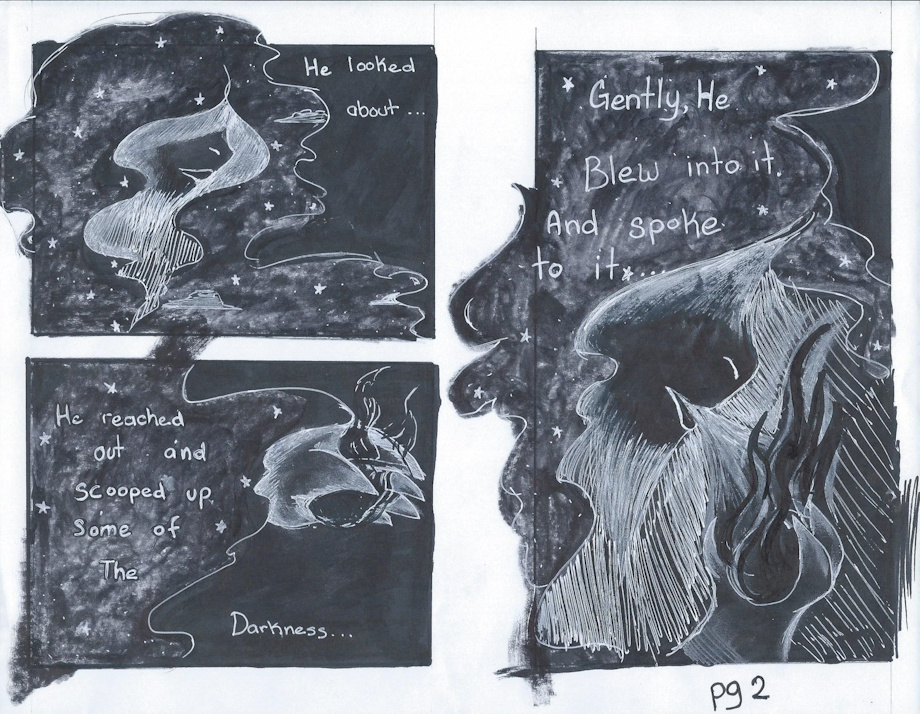 He looked
about...
He reached
out and
scooped up
some of
The
Darkness...
Gently, He
Blew into it.
And spoke
to it....
pg 2